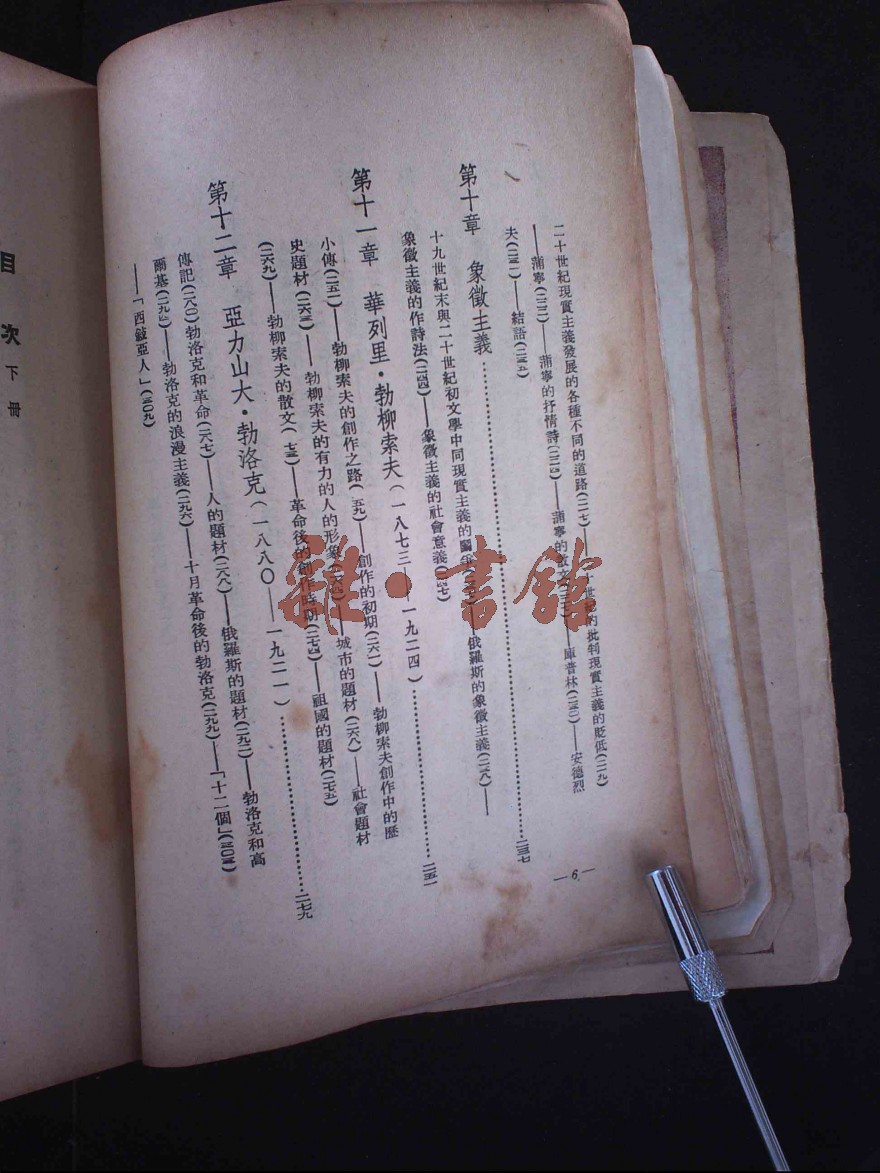 二十世紀現實主義發展的各種不同的道路(二一七)——十世紀的批判現實主義的貶低(二一九)
——蒲寧(二二二)——蒲寧的抒情詩(二二四)——蒲寧的散文——庫普林(二三二)——安德烈
夫(二三二)——結語(二三五)
第十章 象徵主義……二三七
十九世紀末與二十世紀初文學中同現實主義的鬬爭——俄羅斯的象徵主義(二三八)——
象徵主義的作詩法(二四四)——象徵主義的社會意義(二四七)
第十一章 華列里·勃柳索夫(一八七三——一九二四)……二五一
小傳(二五一)——勃柳索夫的創作之路(二五九)——創作的初期(二六一)——勃柳索夫創作中的歷
史題材(二六三)——勃柳索夫的有力的人的形象(二六四)——城市的題材(二六八)——社會題材
(二六九)——勃柳索夫的散文(二七三)——革命後的創作時期(二七四)——祖國的題材(二七五)
第十二章 亞力山大·勃洛克(一八八〇——一九二一)……二七九
傳記(二八〇)勃洛克和革命(二八七)——人的題材(二八八)——俄羅斯的題材(二九二)——勃洛克和高
爾基(二九四)——勃洛克的浪漫主義(二九六)——十月革命後的勃洛克(二九九)——「十二個」(三〇三)
——「西敍亞人」(三〇九)
—6—
目次 下冊
雜·書館